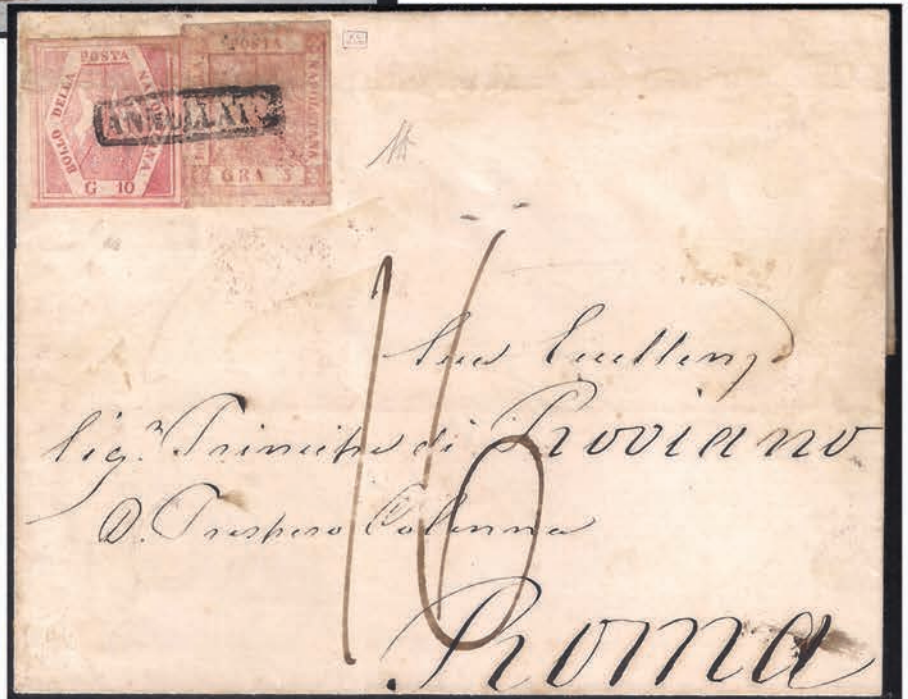 BOLLO DELLA POSTA NAPOLETANA
G 10
POSTA NAPOLETANA
GRA 5
ANNULLATO
16
Sua Eccellenza
Sigr. Principe di Roviano
D. Prospero Colonna
Roma